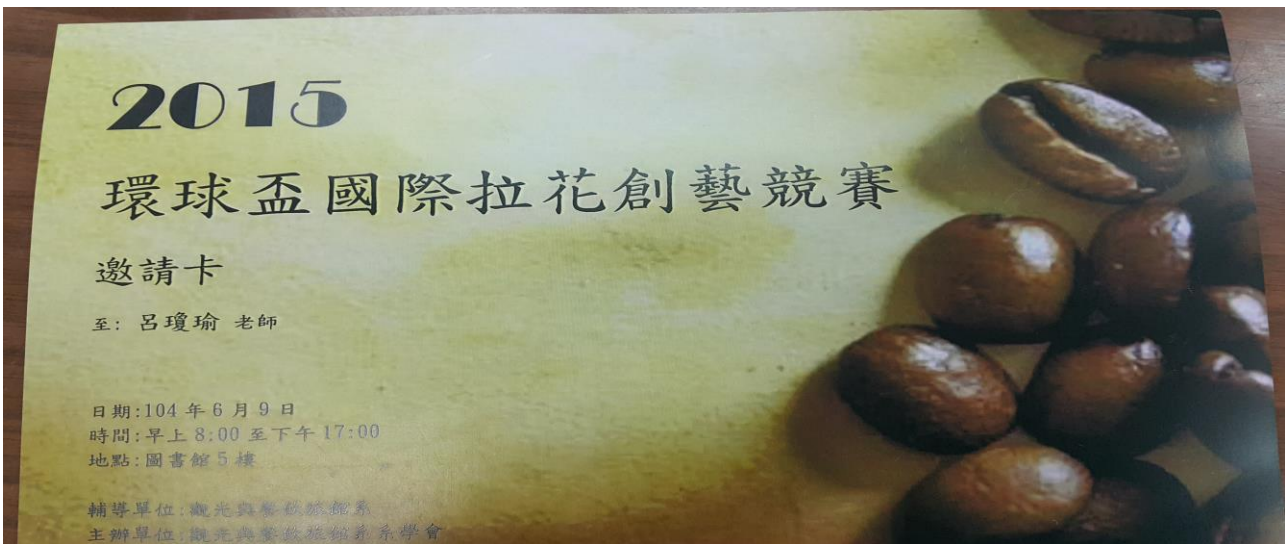 2015
環球盃國際拉花創藝競賽
邀請卡
至: 呂瓊瑜 老師
日期:104 年 6 月 9 日
時間:早上 8:00 至下午 17:00
地點:圖書館 5 樓
輔導單位:觀光與餐飲旅館系
主辦單位:觀光與餐飲旅館系系學會